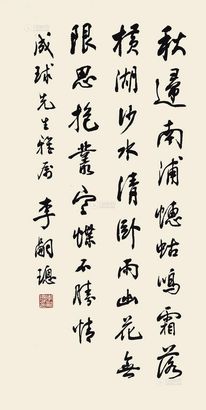 秋歸南浦蟪蛄鳴霜落
橫湖沙水清臥雨幽花無
限思抱叢寒蝶不勝情
成球先生雅属 李嗣璁